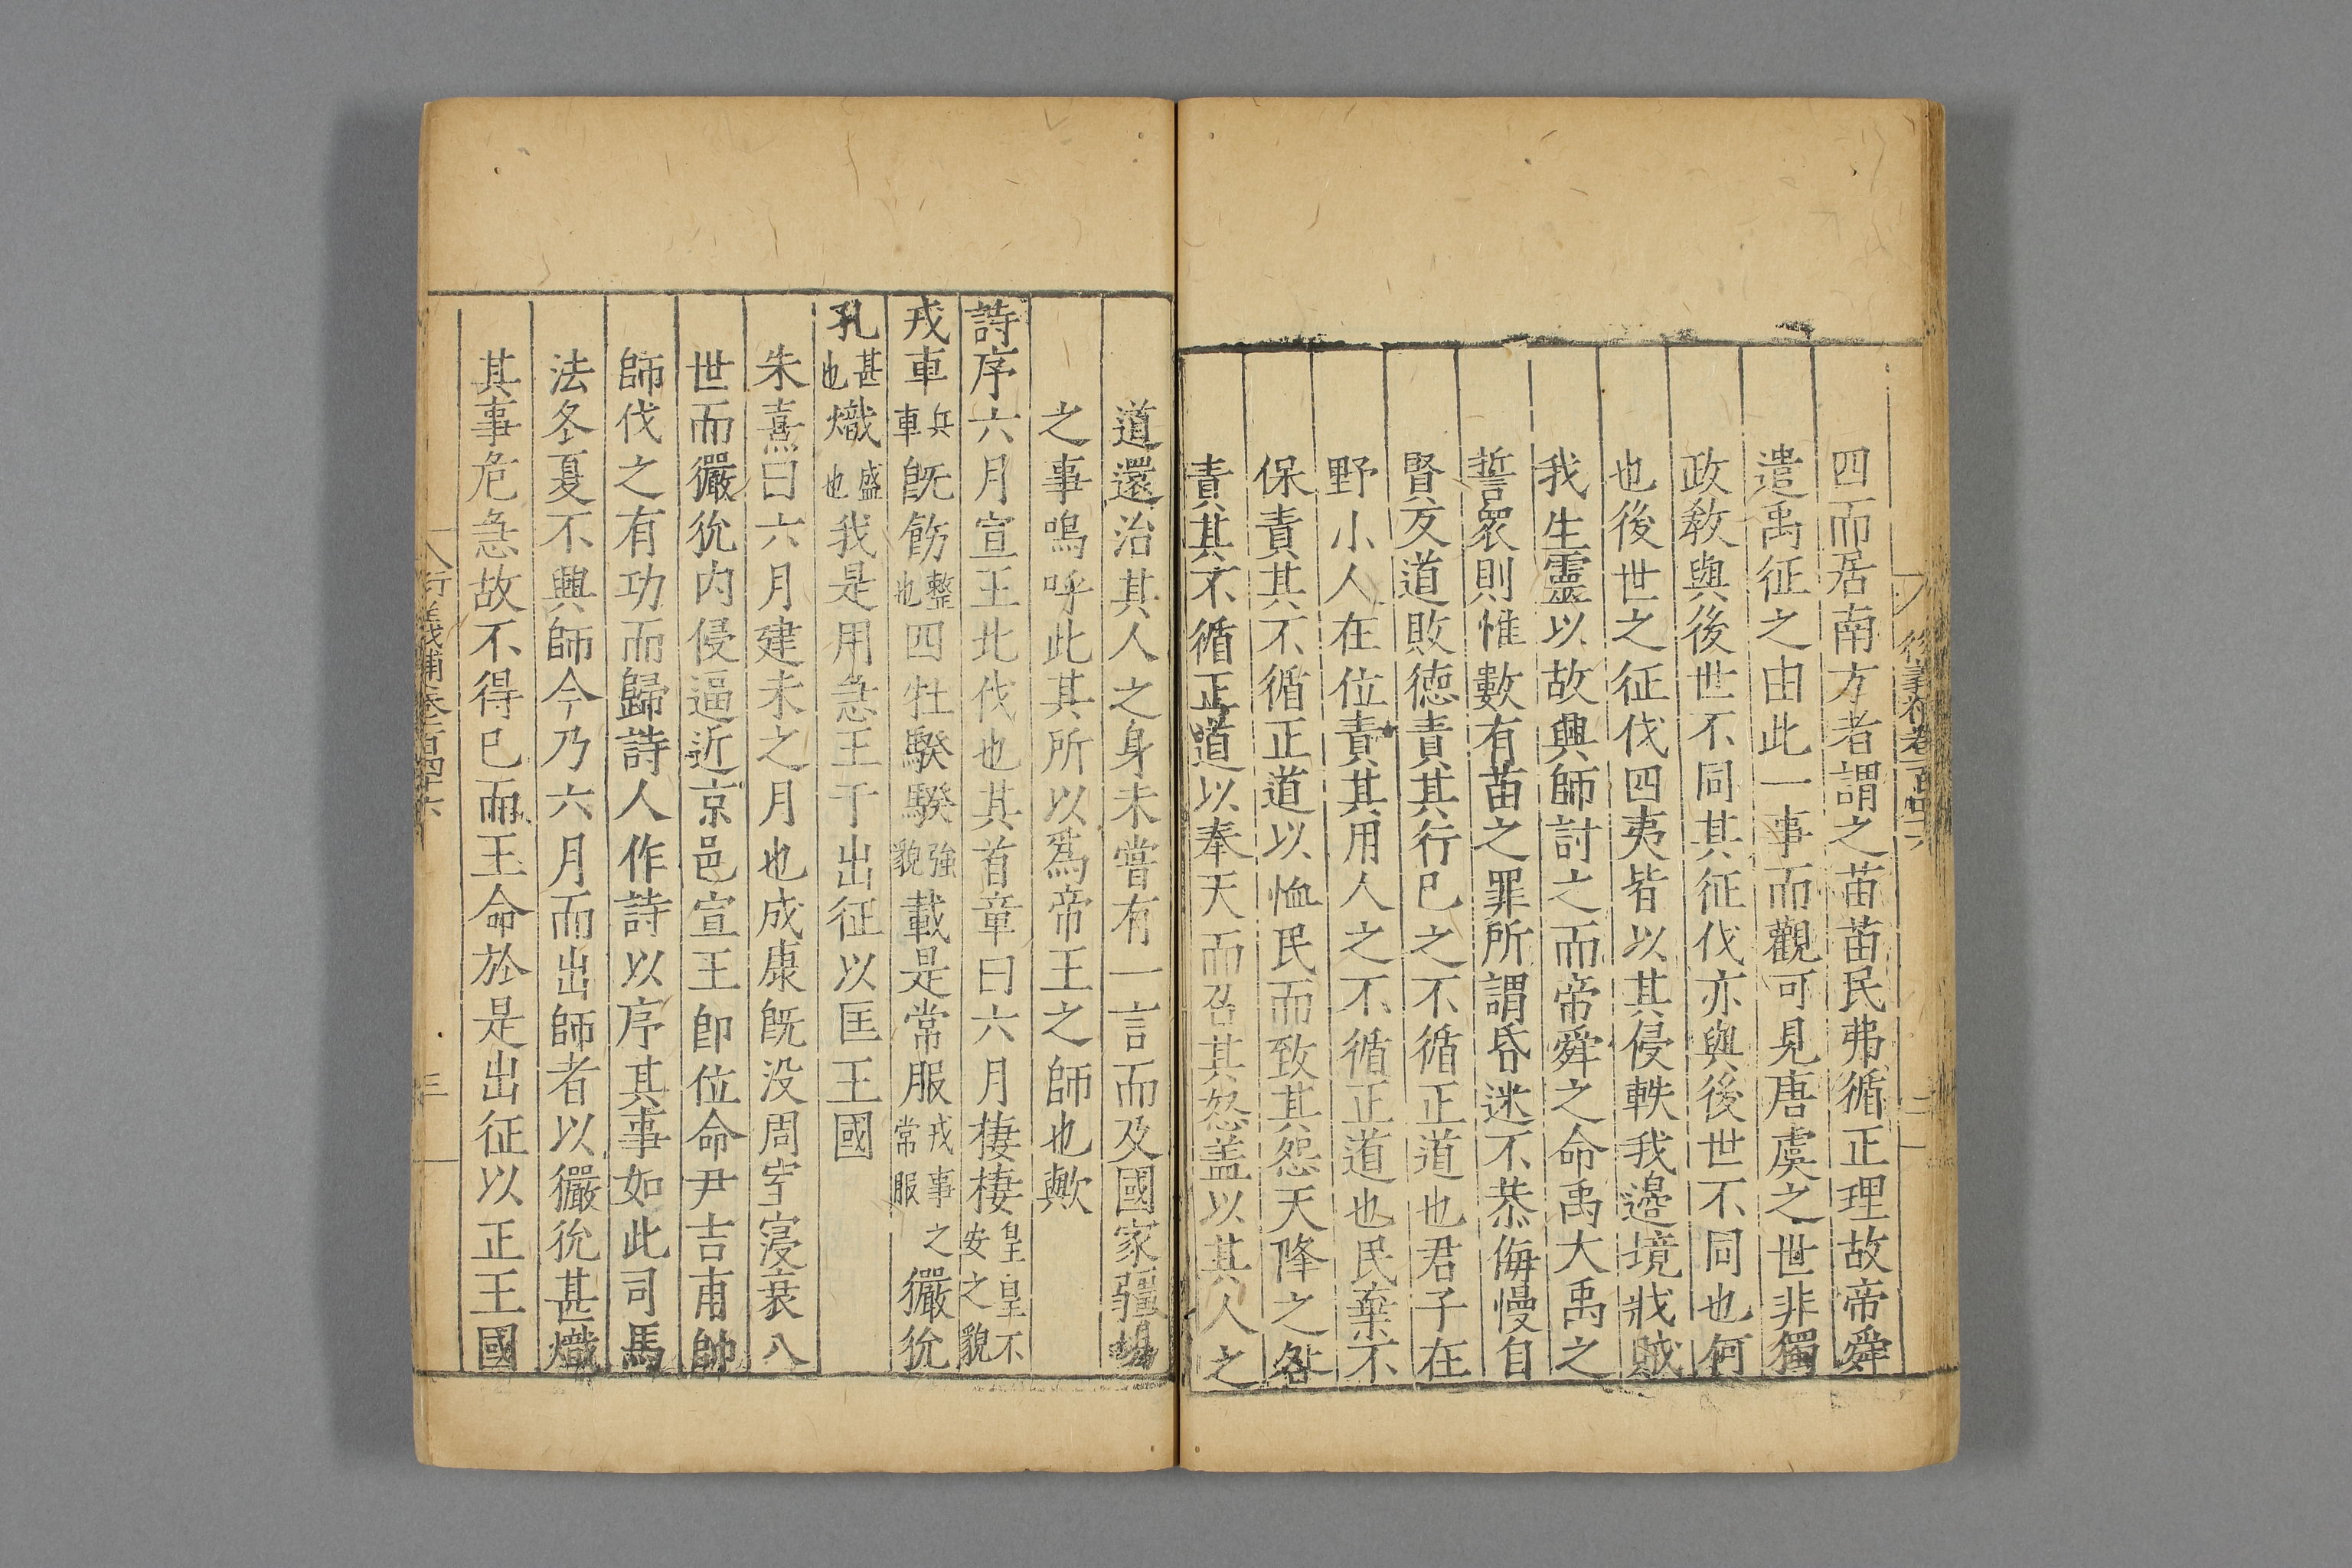 四而居南方者謂之苗苗民弗循正理故帝舜
遣禹征之由此一事而觀可見唐虞之世非獨
政敎與後世不同其征伐亦與後世不同也何
也後世之征伐四夷皆以其侵軼我邊境戕賊
我生靈以故興師討之而帝舜之命禹大禹之
誓衆則惟數有苗之罪所謂昏迷不恭侮慢自
賢反道敗德責其行已之不循正道也君子在
野小人在位責其用人之不循正道也民棄不
保責其不循正道以恤民而致其怨天降之咎
責其不循正道以奉天而召其怒盖以其人之
道還治其人之身未嘗有一言而及國家疆埸
之事嗚呼此其所以爲帝王之師也歟
詩序六月宣王北伐也其首章曰六月棲棲皇皇不安之貌
戎車兵車旣飭整也四牡騤騤強貌載是常服戎事之常服玁狁
孔甚也熾盛也我是用急王于出征以匡王國
朱熹曰六月建未之月也成康旣没周室寖衰八
世而玁狁内侵逼近京邑宣王卽位命尹吉甫帥
師伐之有功而歸詩人作詩以序其事如此司馬
法冬夏不興師今乃六月而出師者以玁狁甚熾
其事危急故不得已而王命於是出征以正王國
衍義補卷一百四十六
三